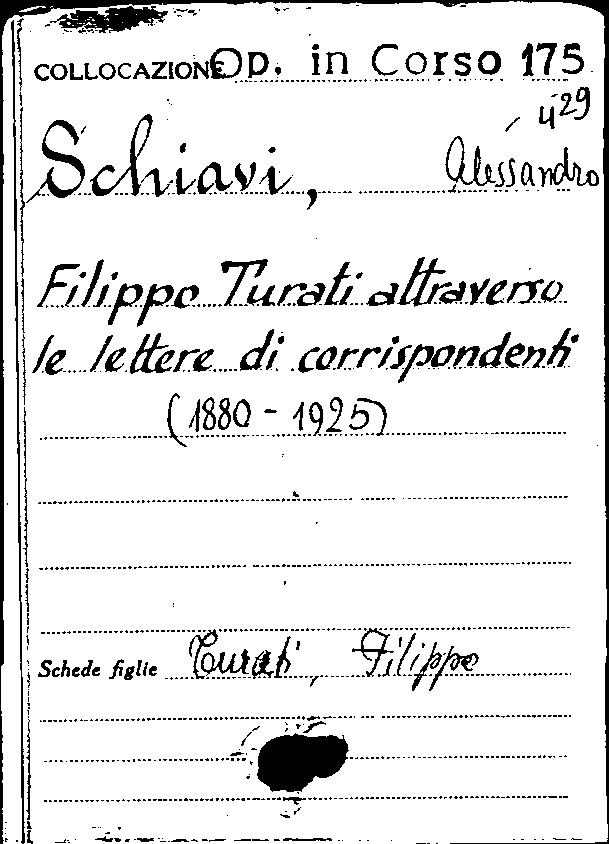 COLLOCAZIONE Op. in Corso 175
429
Schiavi, Alessandro
Filippo Turati attraverso
le lettere di corrispondenti
(1880 - 1925)
Schede figlie Turati, Filippo